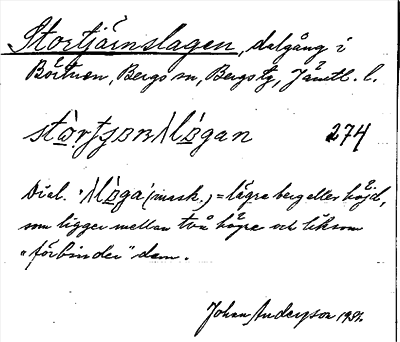 Stortjärnslagen, dalgång i
Börtnen, Bergs sn, Bergs tg, Jämtl. l.
274
Dial. (mask.) = lägre berg eller höjd,
som ligger mellan två högre och liksom
"förbinder" dem.
Johan Anderson 1931.